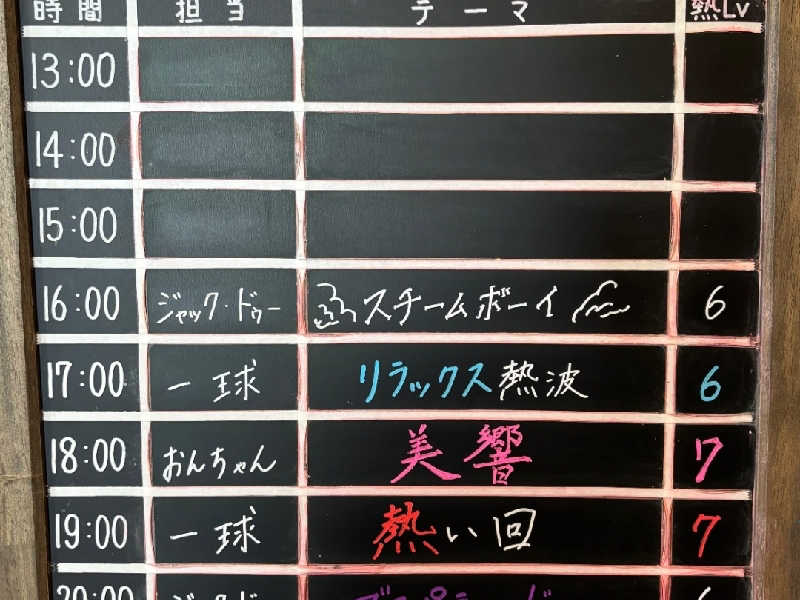 時間 担当 テーマ 熱Lv
13:00
14:00
15:00
16:00 ジャック・ドゥー スチームボーイ 6
17:00 一球 リラックス熱波 6
18:00 おんちゃん 美響 7
19:00 一球 熱い回 7
20:00